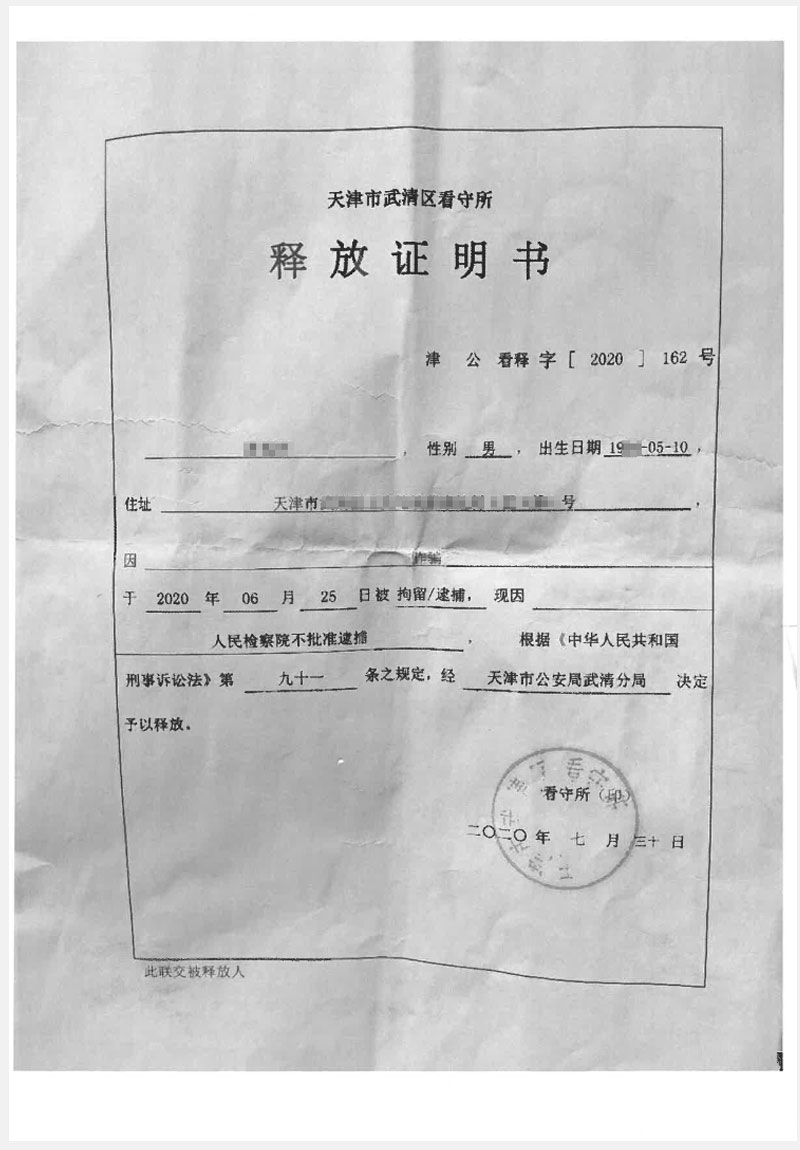 天津市武清区看守所
释放证明书
津公看释字[2020]162号
，性别 男，出生日期19 -05-10，
住址 天津市 号，
因 诈骗
于 2020 年 06 月 25 日被 拘留/逮捕，现因
人民检察院不批准逮捕，根据《中华人民共和国
刑事诉讼法》第 九十一 条之规定，经 天津市公安局武清分局 决定
予以释放。
看守所（印）
二〇二〇年 七 月 三十 日
此联交被释放人